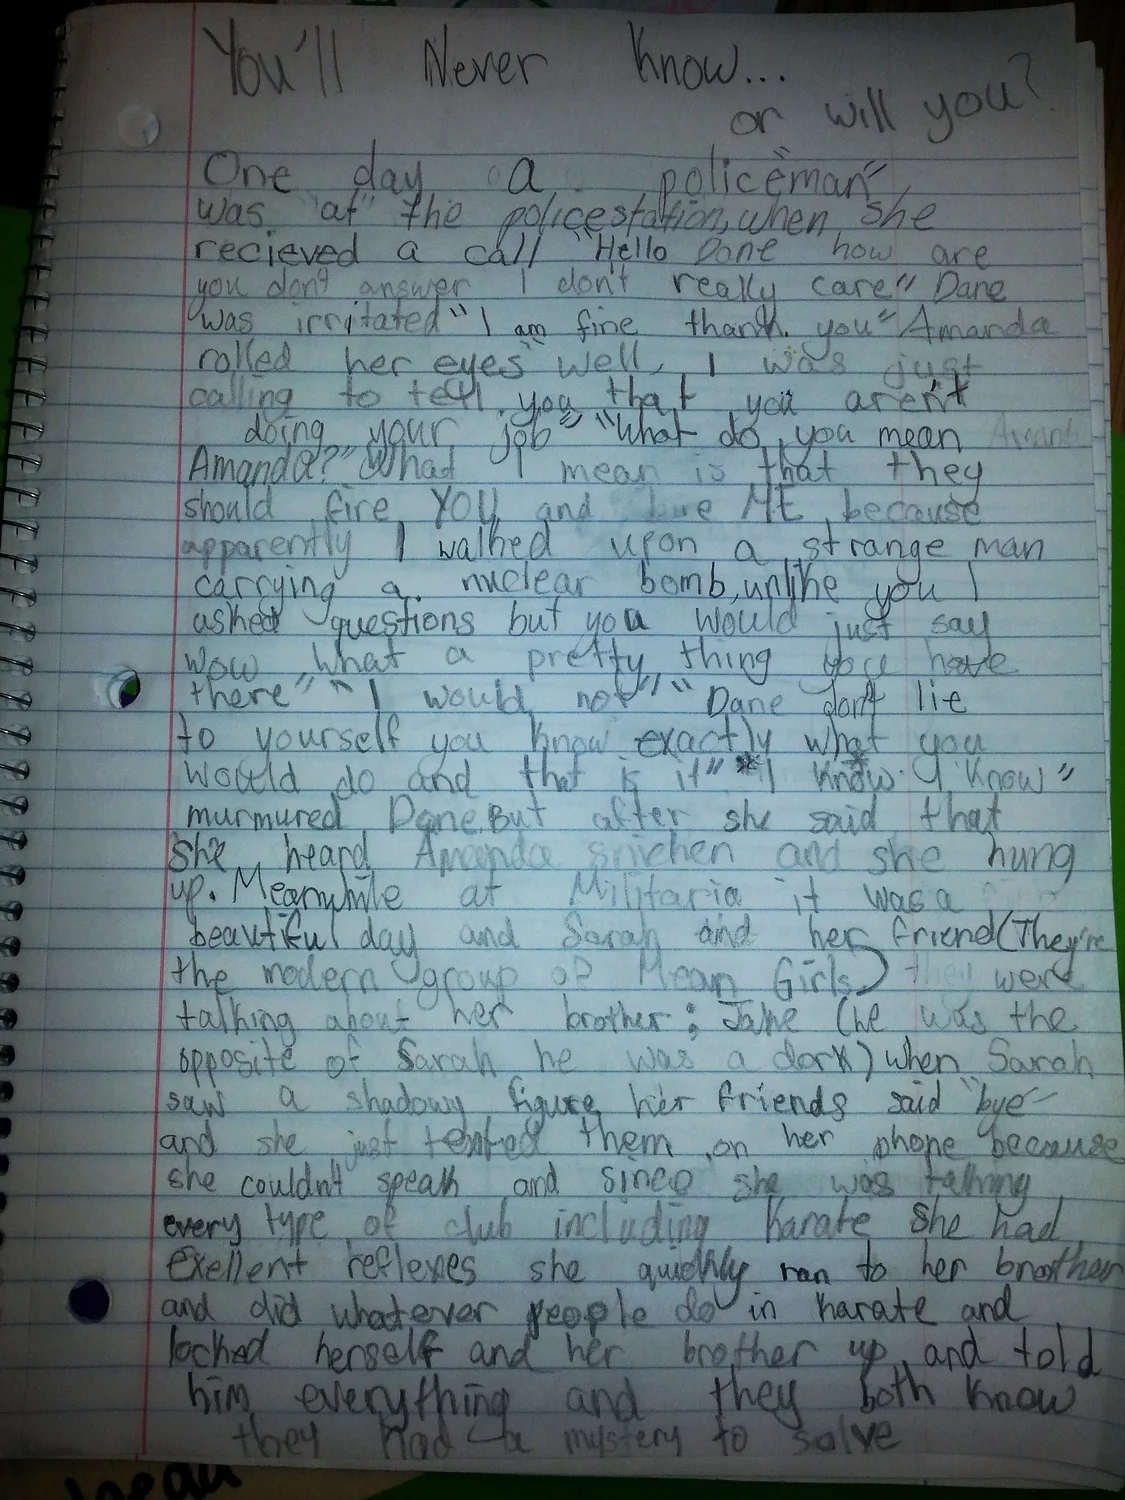 You'll Never Know...
or will you?
One day a "policeman"
was "at" the policestation, when she
recieved a call "Hello Dane how are
you don't answer I don't really care" Dane
was irritated "I am fine thank you" Amanda
rolled her eyes "well, I was just
calling to tell you that you aren't
doing your job" "What do you mean
Amanda?" What I mean is that they
should fire YOU and hire ME because
apparently I walked upon a strange man
carrying a nuclear bomb, unlike you I
asked questions but you would just say
wow what a pretty thing you have
there" "I would not" "Dane don't lie
to yourself you know exactly what you
would do and that is it" "I know I know"
murmured Dane. But after she said that
she heard Amanda snicker and she hung
up. Meanwhile at Militaria it was a
beautiful day and Sarah and her friend (They're
the modern group of Mean Girls) they were
talking about her brother; Jake (he was the
opposite of Sarah he was a dork) when Sarah
saw a shadowy figure her friends said "bye"
and she just texted them on her phone because
she couldn't speak and since she was talking
every type of club including Karate she had
exellent reflexes she quickly ran to her brother
and did whatever people do in karate and
locked herself and her brother up and told
him everything and they both know
they had a mystery to solve